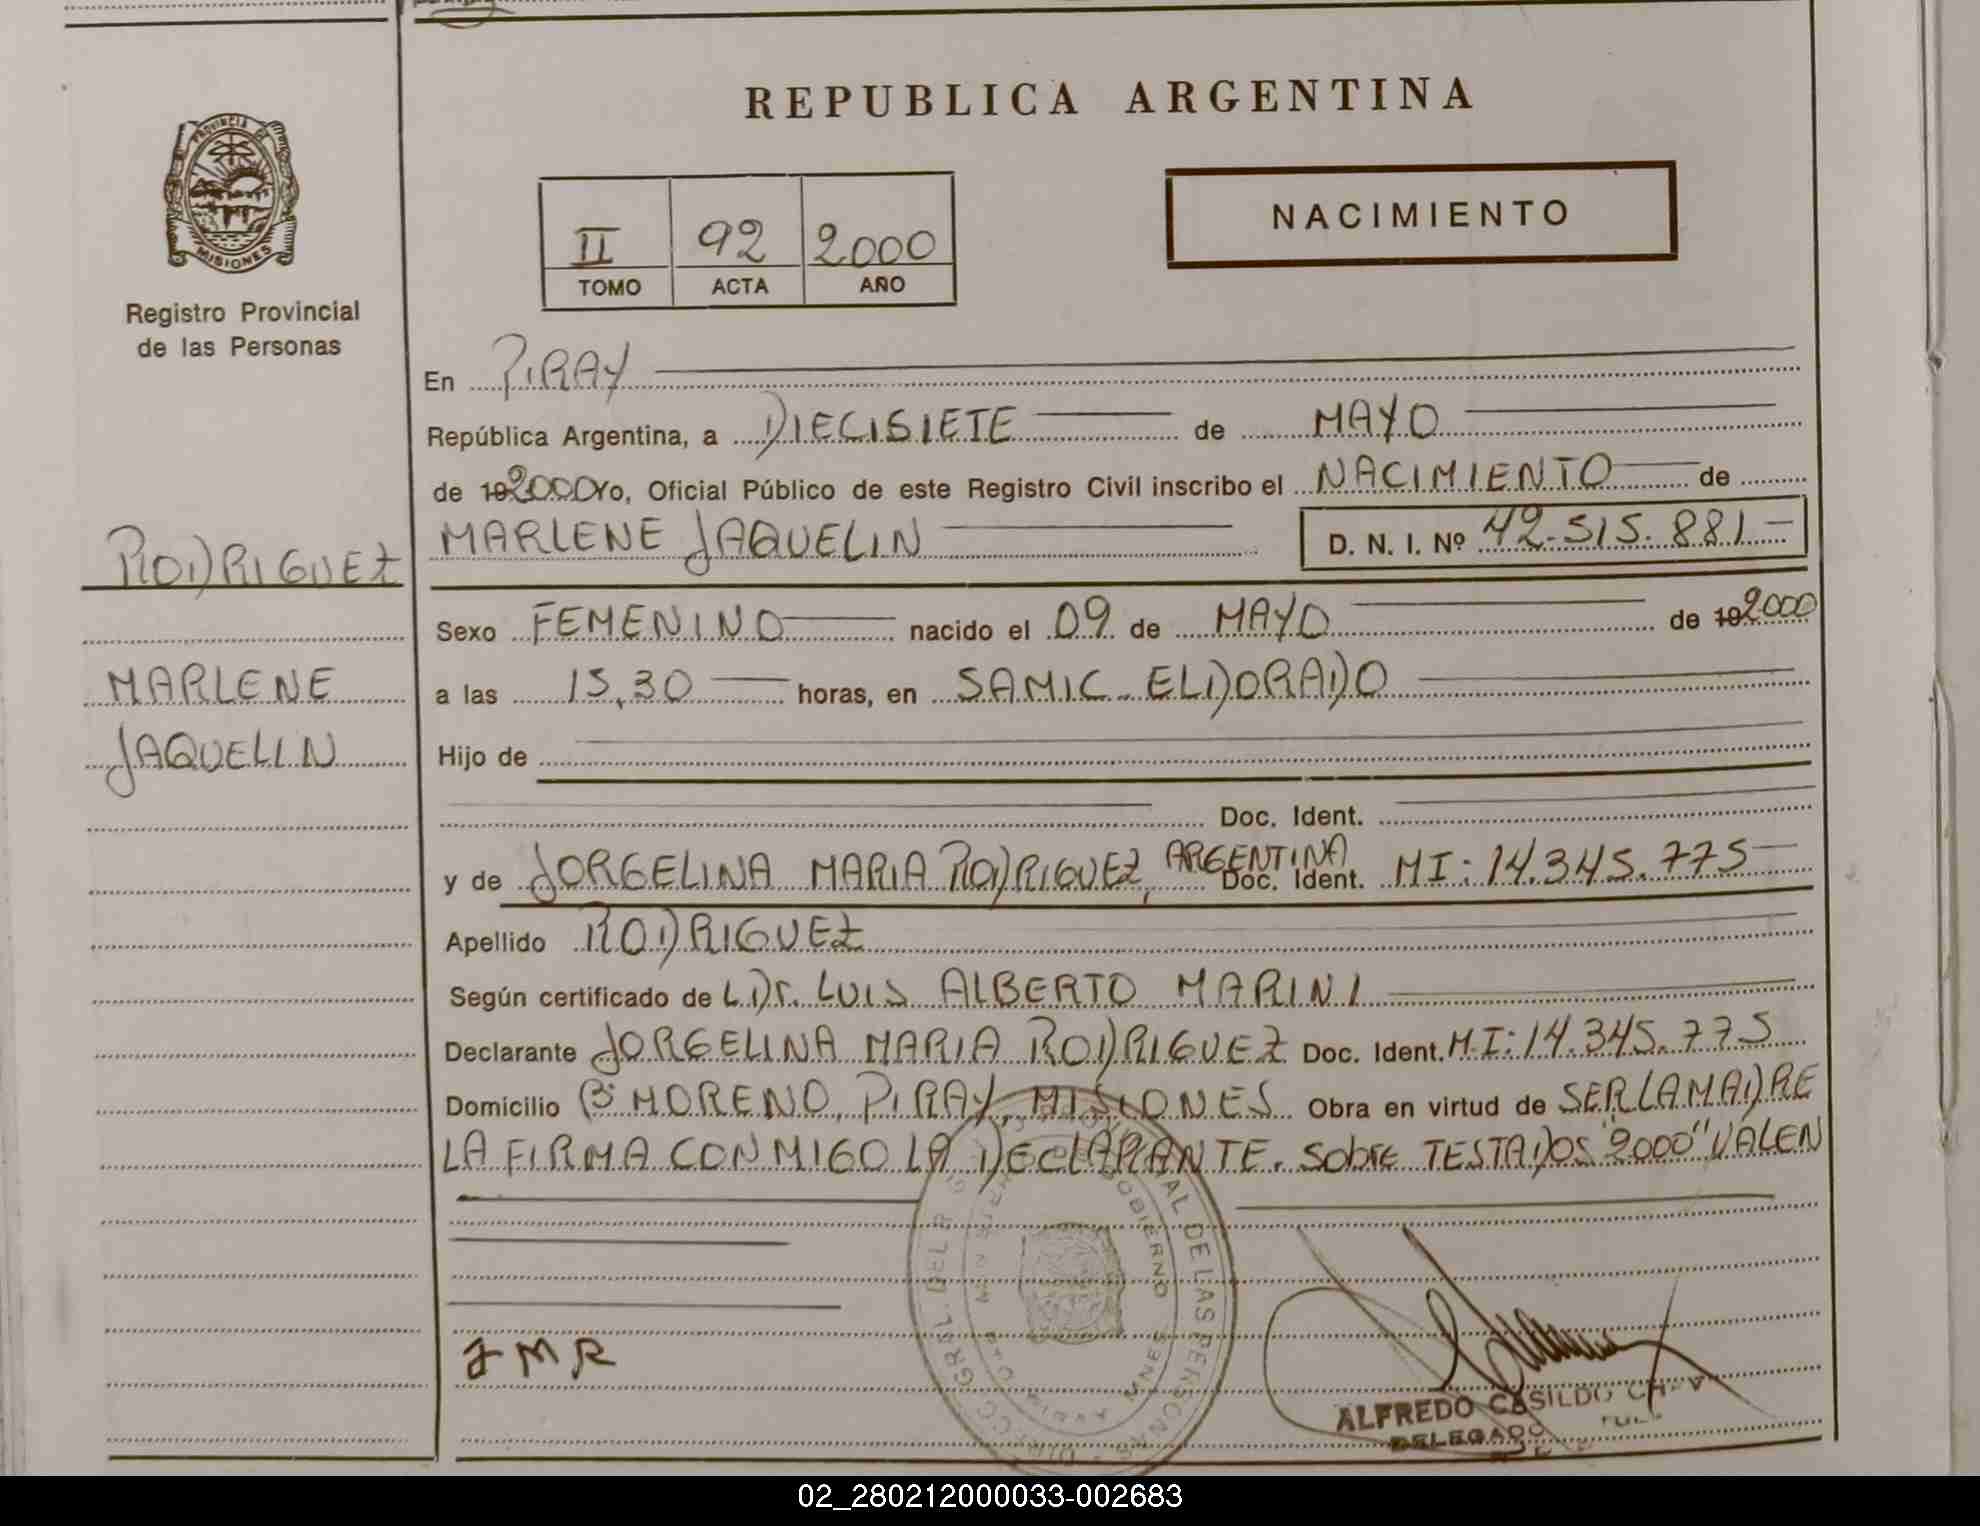 REPUBLICA ARGENTINA
PROVINCIA DE
MISIONES
Registro Provincial
de las Personas
NACIMIENTO
II 92 2000
TOMO ACTA AÑO
En PIRAY
República Argentina, a DIECISIETE de MAYO
de 192000 Yo, Oficial Público de este Registro Civil inscribo el NACIMIENTO de
MARLENE JAQUELIN D. N. I. Nº 42.515.881
RODRIGUEZ
MARLENE
JAQUELIN
Sexo FEMENINO nacido el 09 de MAYO de 192000
a las 15,30 horas, en SAMIC ELDORADO
Hijo de
Doc. Ident.
y de JORGELINA MARIA RODRIGUEZ, ARGENTINA Doc. Ident. MI: 14.345.775
Apellido RODRIGUEZ
Según certificado de L Dr. LUIS ALBERTO MARINI
Declarante JORGELINA MARIA RODRIGUEZ Doc. Ident. M.I: 14.345.775
Domicilio Bº MORENO, PIRAY, MISIONES Obra en virtud de SER LA MADRE
LA FIRMA CONMIGO LA DECLARANTE. SobrE TESTADOS "2000" VALEN
JMR
GOBIERNO
DE LAS PERSONAS
MNES
ALFREDO CASILDO
DELEGADO
02_280212000033-002683